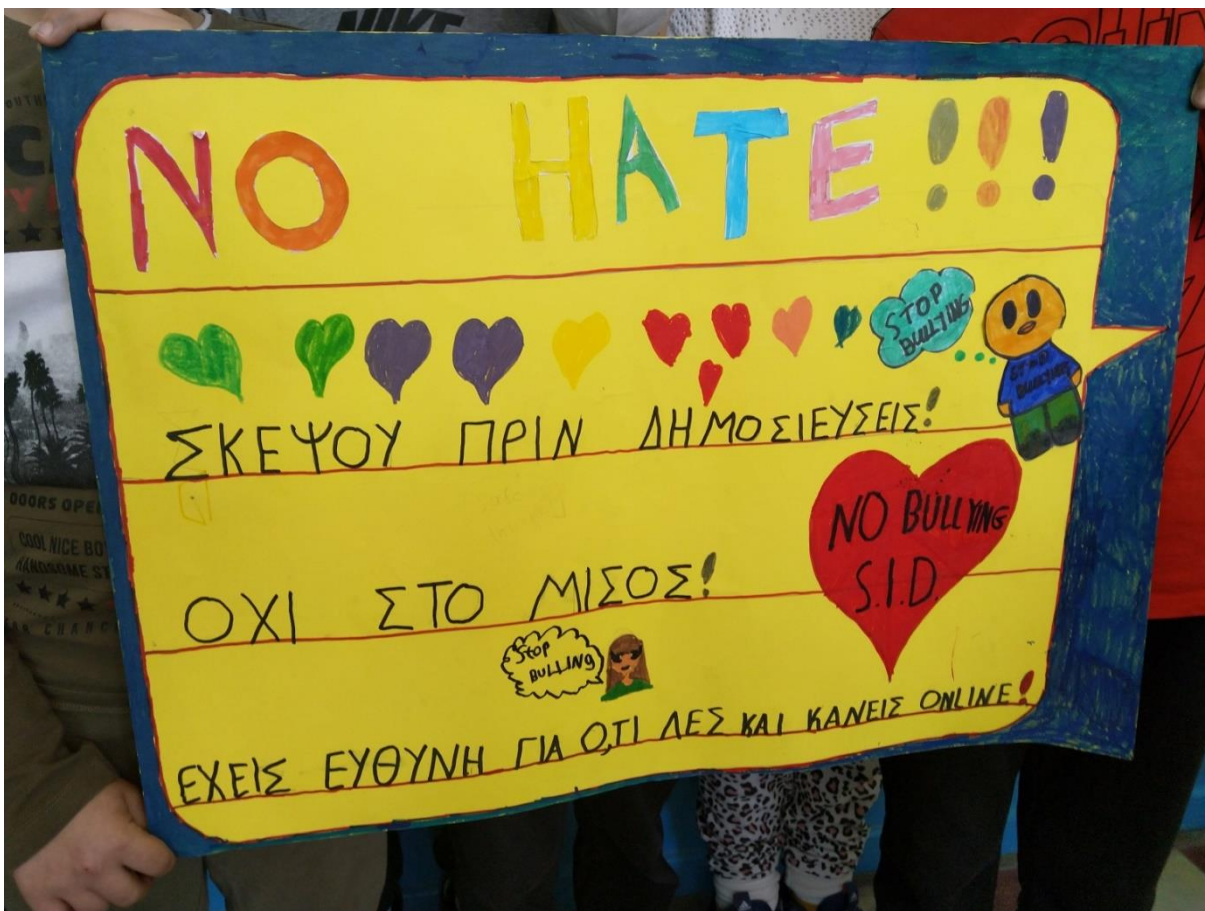 NIKE
NO HATE!!!
STOP
BULLYING
ΣΚΕΨΟΥ ΠΡΙΝ ΔΗΜΟΣΙΕΥΣΕΙΣ!
NO BULLYING
S.I.D.
ΟΧΙ ΣΤΟ ΜΙΣΟΣ!
Stop
BULLING
ΕΧΕΙΣ ΕΥΘΥΝΗ ΓΙΑ Ο,ΤΙ ΛΕΣ ΚΑΙ ΚΑΝΕΙΣ ONLINE!
DOORS OPE
COOL NICE BO
HANDSOME ST